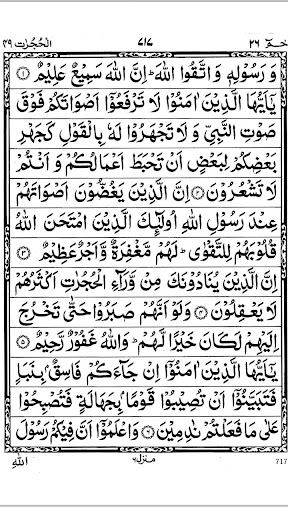 الحجرات ٤٩ ٧١٧ حٰمٓ ٢٦
وَ رَسُوْلِهٖ وَ اتَّقُوا اللّٰهَ ؕ اِنَّ اللّٰهَ سَمِیْعٌ عَلِیْمٌ ﴿۱﴾
یٰۤاَیُّهَا الَّذِیْنَ اٰمَنُوْا لَا تَرْفَعُوْۤا اَصْوَاتَكُمْ فَوْقَ
صَوْتِ النَّبِیِّ وَ لَا تَجْهَرُوْا لَهٗ بِالْقَوْلِ كَجَهْرِ
بَعْضِكُمْ لِبَعْضٍ اَنْ تَحْبَطَ اَعْمَالُكُمْ وَ اَنْتُمْ
لَا تَشْعُرُوْنَ ﴿۲﴾ اِنَّ الَّذِیْنَ یَغُضُّوْنَ اَصْوَاتَهُمْ
عِنْدَ رَسُوْلِ اللّٰهِ اُولٰٓئِكَ الَّذِیْنَ امْتَحَنَ اللّٰهُ
قُلُوْبَهُمْ لِلتَّقْوٰی ؕ لَهُمْ مَّغْفِرَةٌ وَّ اَجْرٌ عَظِیْمٌ ﴿۳﴾
اِنَّ الَّذِیْنَ یُنَادُوْنَكَ مِنْ وَّرَآءِ الْحُجُرٰتِ اَكْثَرُهُمْ
لَا یَعْقِلُوْنَ ﴿۴﴾ وَ لَوْ اَنَّهُمْ صَبَرُوْا حَتّٰی تَخْرُجَ
اِلَیْهِمْ لَكَانَ خَیْرًا لَّهُمْ ؕ وَ اللّٰهُ غَفُوْرٌ رَّحِیْمٌ ﴿۵﴾
یٰۤاَیُّهَا الَّذِیْنَ اٰمَنُوْۤا اِنْ جَآءَكُمْ فَاسِقٌۢ بِنَبَاٍ
فَتَبَیَّنُوْۤا اَنْ تُصِیْبُوْا قَوْمًۢا بِجَهَالَةٍ فَتُصْبِحُوْا
عَلٰی مَا فَعَلْتُمْ نٰدِمِیْنَ ﴿۶﴾ وَ اعْلَمُوْۤا اَنَّ فِیْكُمْ رَسُوْلَ
اللّٰهِ منزل ٦ 717